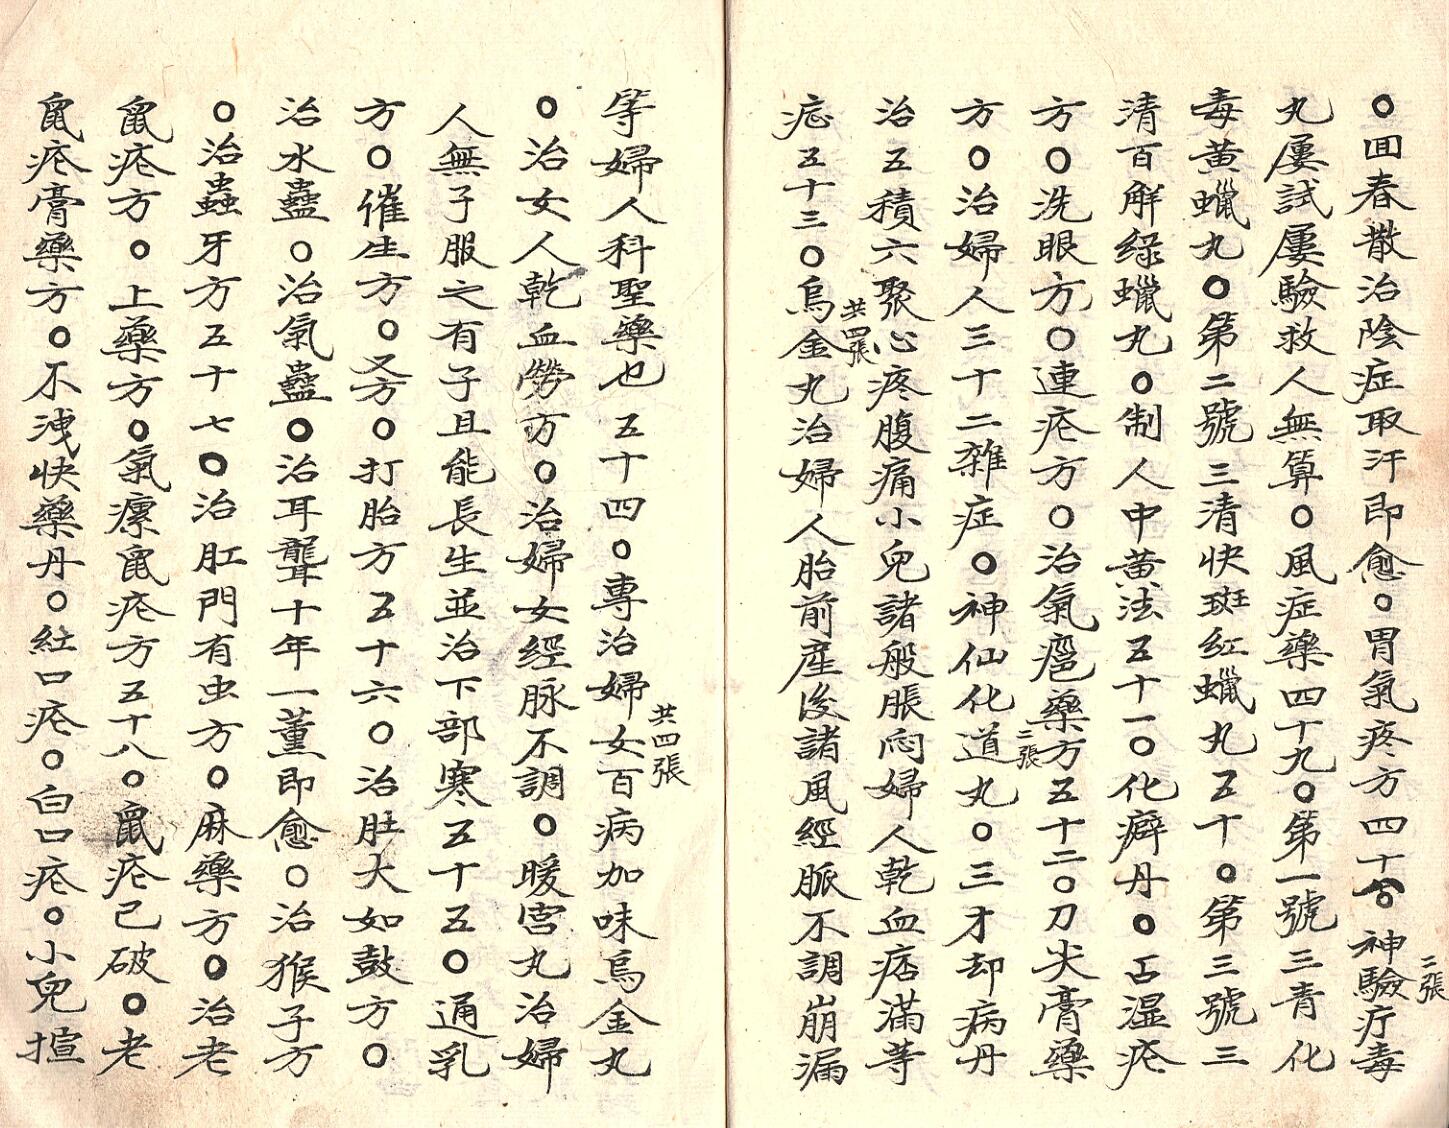 ○回春散治陰症取汗即愈○胃氣疼方四十八○神驗疔毒
二張
丸屢試屢驗救人無算○風症藥四十九○第一號三青化
毒黄蠟丸○第二號三清快斑紅蠟丸五十○第三號三
清百解綠蠟丸○制人中黄法五十一○化癖丹○古湿疮
方○洗眼方○連疮方○治氣瘪藥方五十二○刀尖膏藥
二張
方○治婦人三十二雜症○神仙化道丸○三才却病丹
治五積六聚心疼腹痛小兒諸般脹悶婦人乾血痞滿等
共四張
症五十三○烏金丸治婦人胎前産後諸風經脈不調崩漏
等婦人科聖藥也五十四○專治婦女百病加味烏金丸
共四張
○治女人乾血勞方○治婦女經脉不調○暖宫丸治婦
人無子服之有子且能長生並治下部寒五十五○通乳
方○催生方○又方○打胎方五十六○治肚大如鼓方○
治水蠱○治氣蠱○治耳聾十年一薰即愈○治猴子方
○治蟲牙方五十七○治肛門有虫方○麻藥方○治老
鼠疮方○上藥方○氣瘰鼠疮方五十八○鼠疮已破○老
鼠疮膏藥方○不洩快藥丹○紅口疮○白口疮○小兒揎